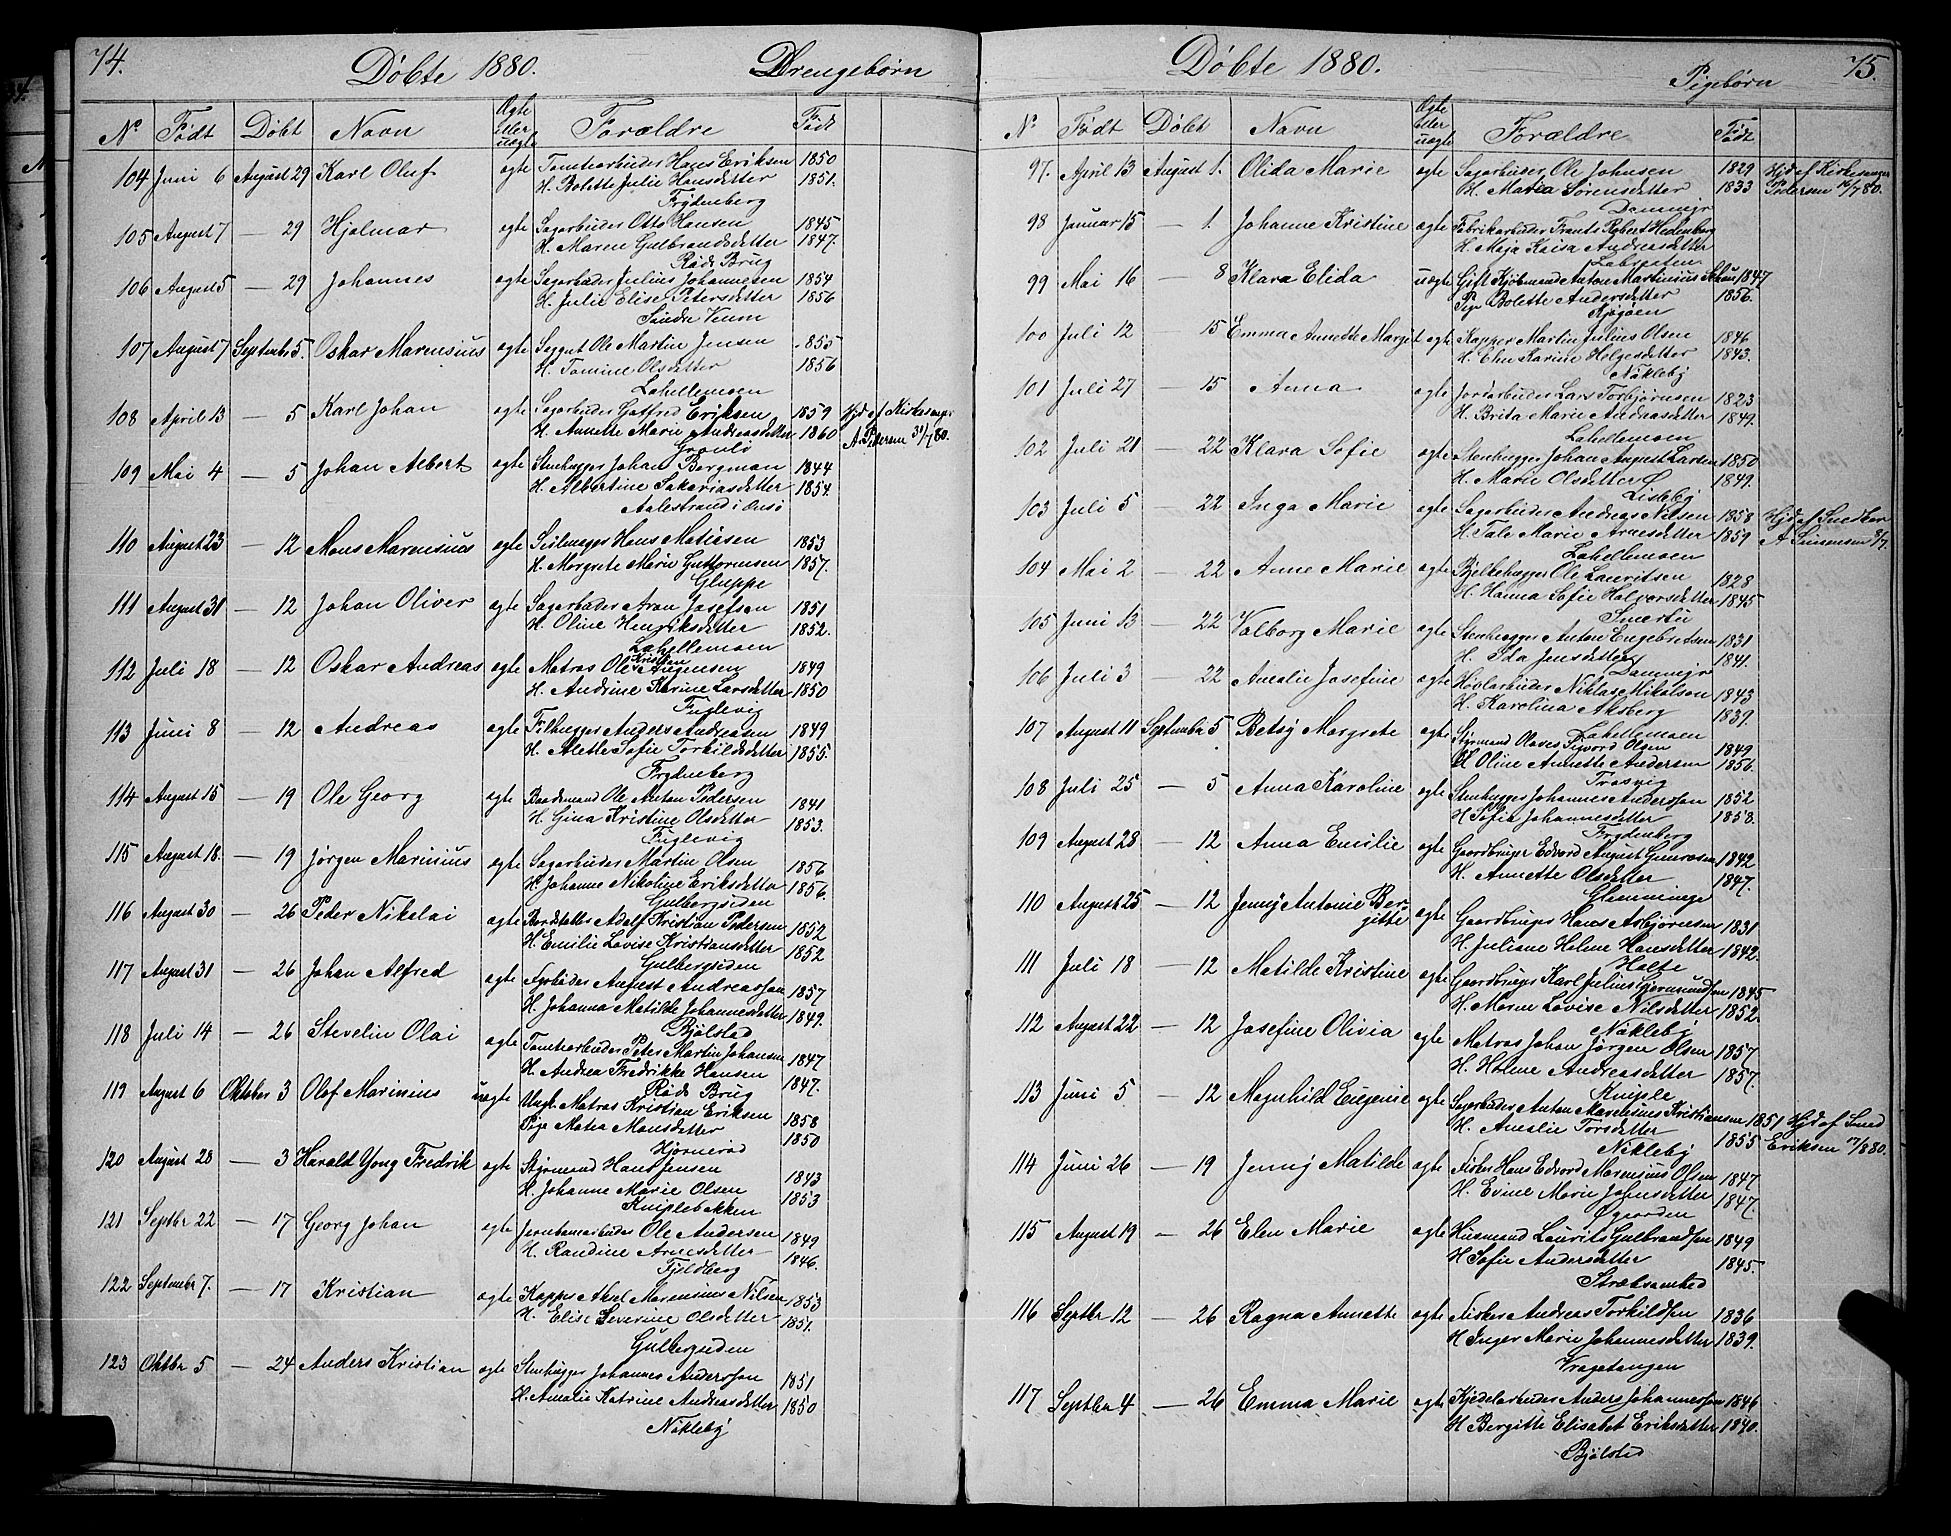 74.
Döbte 1880.
Drengebörn
Nº Födt Döbt Navn Ægte eller uægte Forældre Født
104 Juni 6 August 29 Karl Oluf ægte Tomtearbeider Hans Eriksen 1850
H. Bolette Julie Hansdatter 1851.
Frydenberg
105 August 7 — 29 Hjalmar ægte Sagarbeider Otto Hansen 1845
H. Maren Gulbrandsdatter 1847.
Röds Brug
106 August 5 — 29 Johannes ægte Sagarbeider Julius Johannesen 1854
H. Julie Elise Petersdatter 1856
Söndre Veum
107 August 7 September 5. Oskar Marensius ægte Ole Martin Jensen 1855
H. Tomine Olsdatter 1856
Lahellemoen
108 April 13 — 5 Karl Johan ægte Sagarbeider Gotfred Eriksen 1859 Hjd af Kirkesanger
H. Annette Marie Andreasdatter 1860 A. Pedersen 31/7 80.
Granli
109 Mai 4 — 5 Johan Albert ægte Stenhugger Johan Bergman 1844
H. Albertine Sakariasdatter 1854.
Aalestrand i Onsö
110 August 23 — 12 Mons Marensius ægte Seilmager Hans Matisen 1853
H. Margrete Marie Guttormsen 1857.
Gluppe
111 August 31 — 12 Johan Oliver ægte Sagarbeider Aron Josefsen 1851
H. Oline Henriksdatter 1852.
Lahellemoen
112 Juli 18 — 12 Oskar Andreas ægte Matros Ole Kristian Jörgensen 1849
H. Andrine Karine Larsdatter 1850
Fuglevig
113 Juni 8 — 12 Andreas ægte Filhugger Anders Andreasen 1849
H. Alette Sofie Torkildsdatter 1855.
Frydenberg
114 August 15 — 19 Ole Georg ægte Baadsmand Ole Anton Pedersen 1841
H. Gina Kristine Olsdatter 1853.
Fuglevig
115 August 18. — 19 Jörgen Marinius ægte Sagarbeider Martin Olsen 1856
H. Johanne Nikoline Eriksdatter 1856.
Gulbergsiden
116 August 30 — 26 Peder Nikolai ægte Bordstabler Adolf Kristian Pedersen 1852
H. Emilie Lovise Kristiansdatter 1852.
Gulbergsiden
117 August 31 — 26 Johan Alfred ægte August Andreassen 1857
H. Johanna Matilde Johannesdatter 1849.
Bjölstad
118 Juli 14 — 26 Stevelin Olai ægte Tomtearbeider Peter Martin Johansen 1847
H. Andrea Fredrikke Hansen 1847.
Röds Brug
119 August 6 Oktober 3 Olaf Marinius uægte Ungk. Matros Kristian Eriksen 1858
Pige Matea Monsdatter 1850
Hjörneröd
120 August 28 — 3 Harald Yong Fredrik ægte Styrmand Hans Jensen 1843
H. Johanne Marie Olsen 1853
Kniplebakken
121 Septbr 22 — 17 Georg Johan ægte Jernbanearbeider Ole Andersen 1849
H. Randine Arnesdatter 1846.
Fjeldberg
122 Septembr 7. — 17 Kristian ægte Kapper Aksel Marensius Nilsen 1853
H. Elise Severine Olsdatter 1851.
Gulbergsiden
123 Oktbr 5 — 24 Anders Kristian ægte Stenhugger Johannes Anderssen 1851
H. Amalie Katrine Andreasdatter 1850
Nökleby
75.
Döbte 1880.
Pigebörn
Nº Födt Döbt Navn Ægte eller uægte Forældre Født
97. April 13 August 1. Olida Marie ægte Sagarbeider Ole Johnsen 1829 Hjd af Kirkesanger
H. Maria Sörensdatter 1833 Pedersen 16/7 80.
Dammyr
98 Januar 15 — 1. Johanne Kristine ægte Fabrikarbeider Frants Robert Hedenberg
H. Maja Kaisa Andreasdatter
Labraaten
99 Mai 16 — 8 Klara Elida uægte Gift Kjöbmand Anton Martinius Schau 1847
Pige Bolette Andersdatter 1856.
Kjøgöen
100 Juli 12 — 15 Emma Annette Margit ægte Kapper Martin Julius Olsen 1846
H. Elen Karine Helgesdatter 1843.
Nökleby
101 Juli 27 — 15 Anna ægte Jordarbeider Lars Torbjörnsen 1823
H. Brita Marie Andreasdatter 1849.
Lahellemoen
102 Juli 21 — 22 Klara Sofie ægte Stenhugger Johan August Larsen 1850
H. Marie Olsdatter 1849.
Lisleby
103 Juli 5 — 22 Inga Marie ægte Sagarbeider Andreas Nilsen 1858 Hjd af Snedker
H. Tale Marie Arnesdatter 1859 A Simensen 8/7.
Lahellemoen
104 Mai 2 — 22 Anne Marie ægte Bjelkehugger Ole Lauritsen 1828
H. Hanna Sofie Holgersdatter 1845
Smertu
105 Juni 13 — 22 Valborg Marie ægte Stenhugger Anton Engebretsen 1831
H. Ida Jensdatter 1841.
Dammyr
106 Juli 3 — 22 Amalie Josefine ægte Hövlarbeider Niklas Mikalsen 1843
H. Karolina Aksberg 1839.
Lahellemoen
107 August 11 September 5 Betsy Margrete ægte Styrmand Olaves Sigvord Olsen 1849
H Oline Annette Andersen 1856.
Trosvig
108 Juli 25 — 5 Anna Karoline ægte Stenhugger Johannes Anderssen 1852
H Sofie Johannesdatter 1853.
Frydenberg
109 August 28 — 12 Anna Emilie ægte Gaardbruger Edvard August Gunrosen 1842
H. Annette Olsdatter 1847.
Glemminge
110 August 25 — 12 Jenny Antonie Bergitte ægte Gaardbruger Hans Asbjörnsen 1831
H. Juliane Helene Hansdatter 1842.
Holte
111 Juli 18 — 12 Matilde Kristine ægte Gaardbruger Karl Julius Gjermundsen 1845
H. Maren Lovise Nilsdatter 1852.
Nökleby
112 August 22 — 12 Josefine Olivia ægte Matros Johan Jörgen Olsen 1857
H. Helene Andreasdatter 1857.
Kniple
113 Juni 5 — 12 Magnhild Eugenie ægte Sagarbeider Anton Marelius Kristiansen 1851 Hjd af Smed
H. Amalie Torsdatter 1855 Eriksen 7/8 80.
Nökleby
114 Juni 26 — 19 Jenny Matilde ægte Fisker Hans Edvard Marensius Olsen 1847
H. Evine Marie Johnsdatter 1847.
Ögaarden
115 August 19 — 26 Elen Marie ægte Husmand Laurits Gulbrandsen 1849
H Sofie Andersdatter 1845.
116 Septbr 12 — 26 Ragna Annette ægte Fisker Andreas Torkildsen 1836
H Inger Marie Johannesdatter 1839.
Vragetangen
117 Septbr 4 — 26 Emma Marie ægte Kjedelarbeider Anders Johannessen 1846
H Bergitte Elisabet Eriksdatter 1840.
Bjölstad